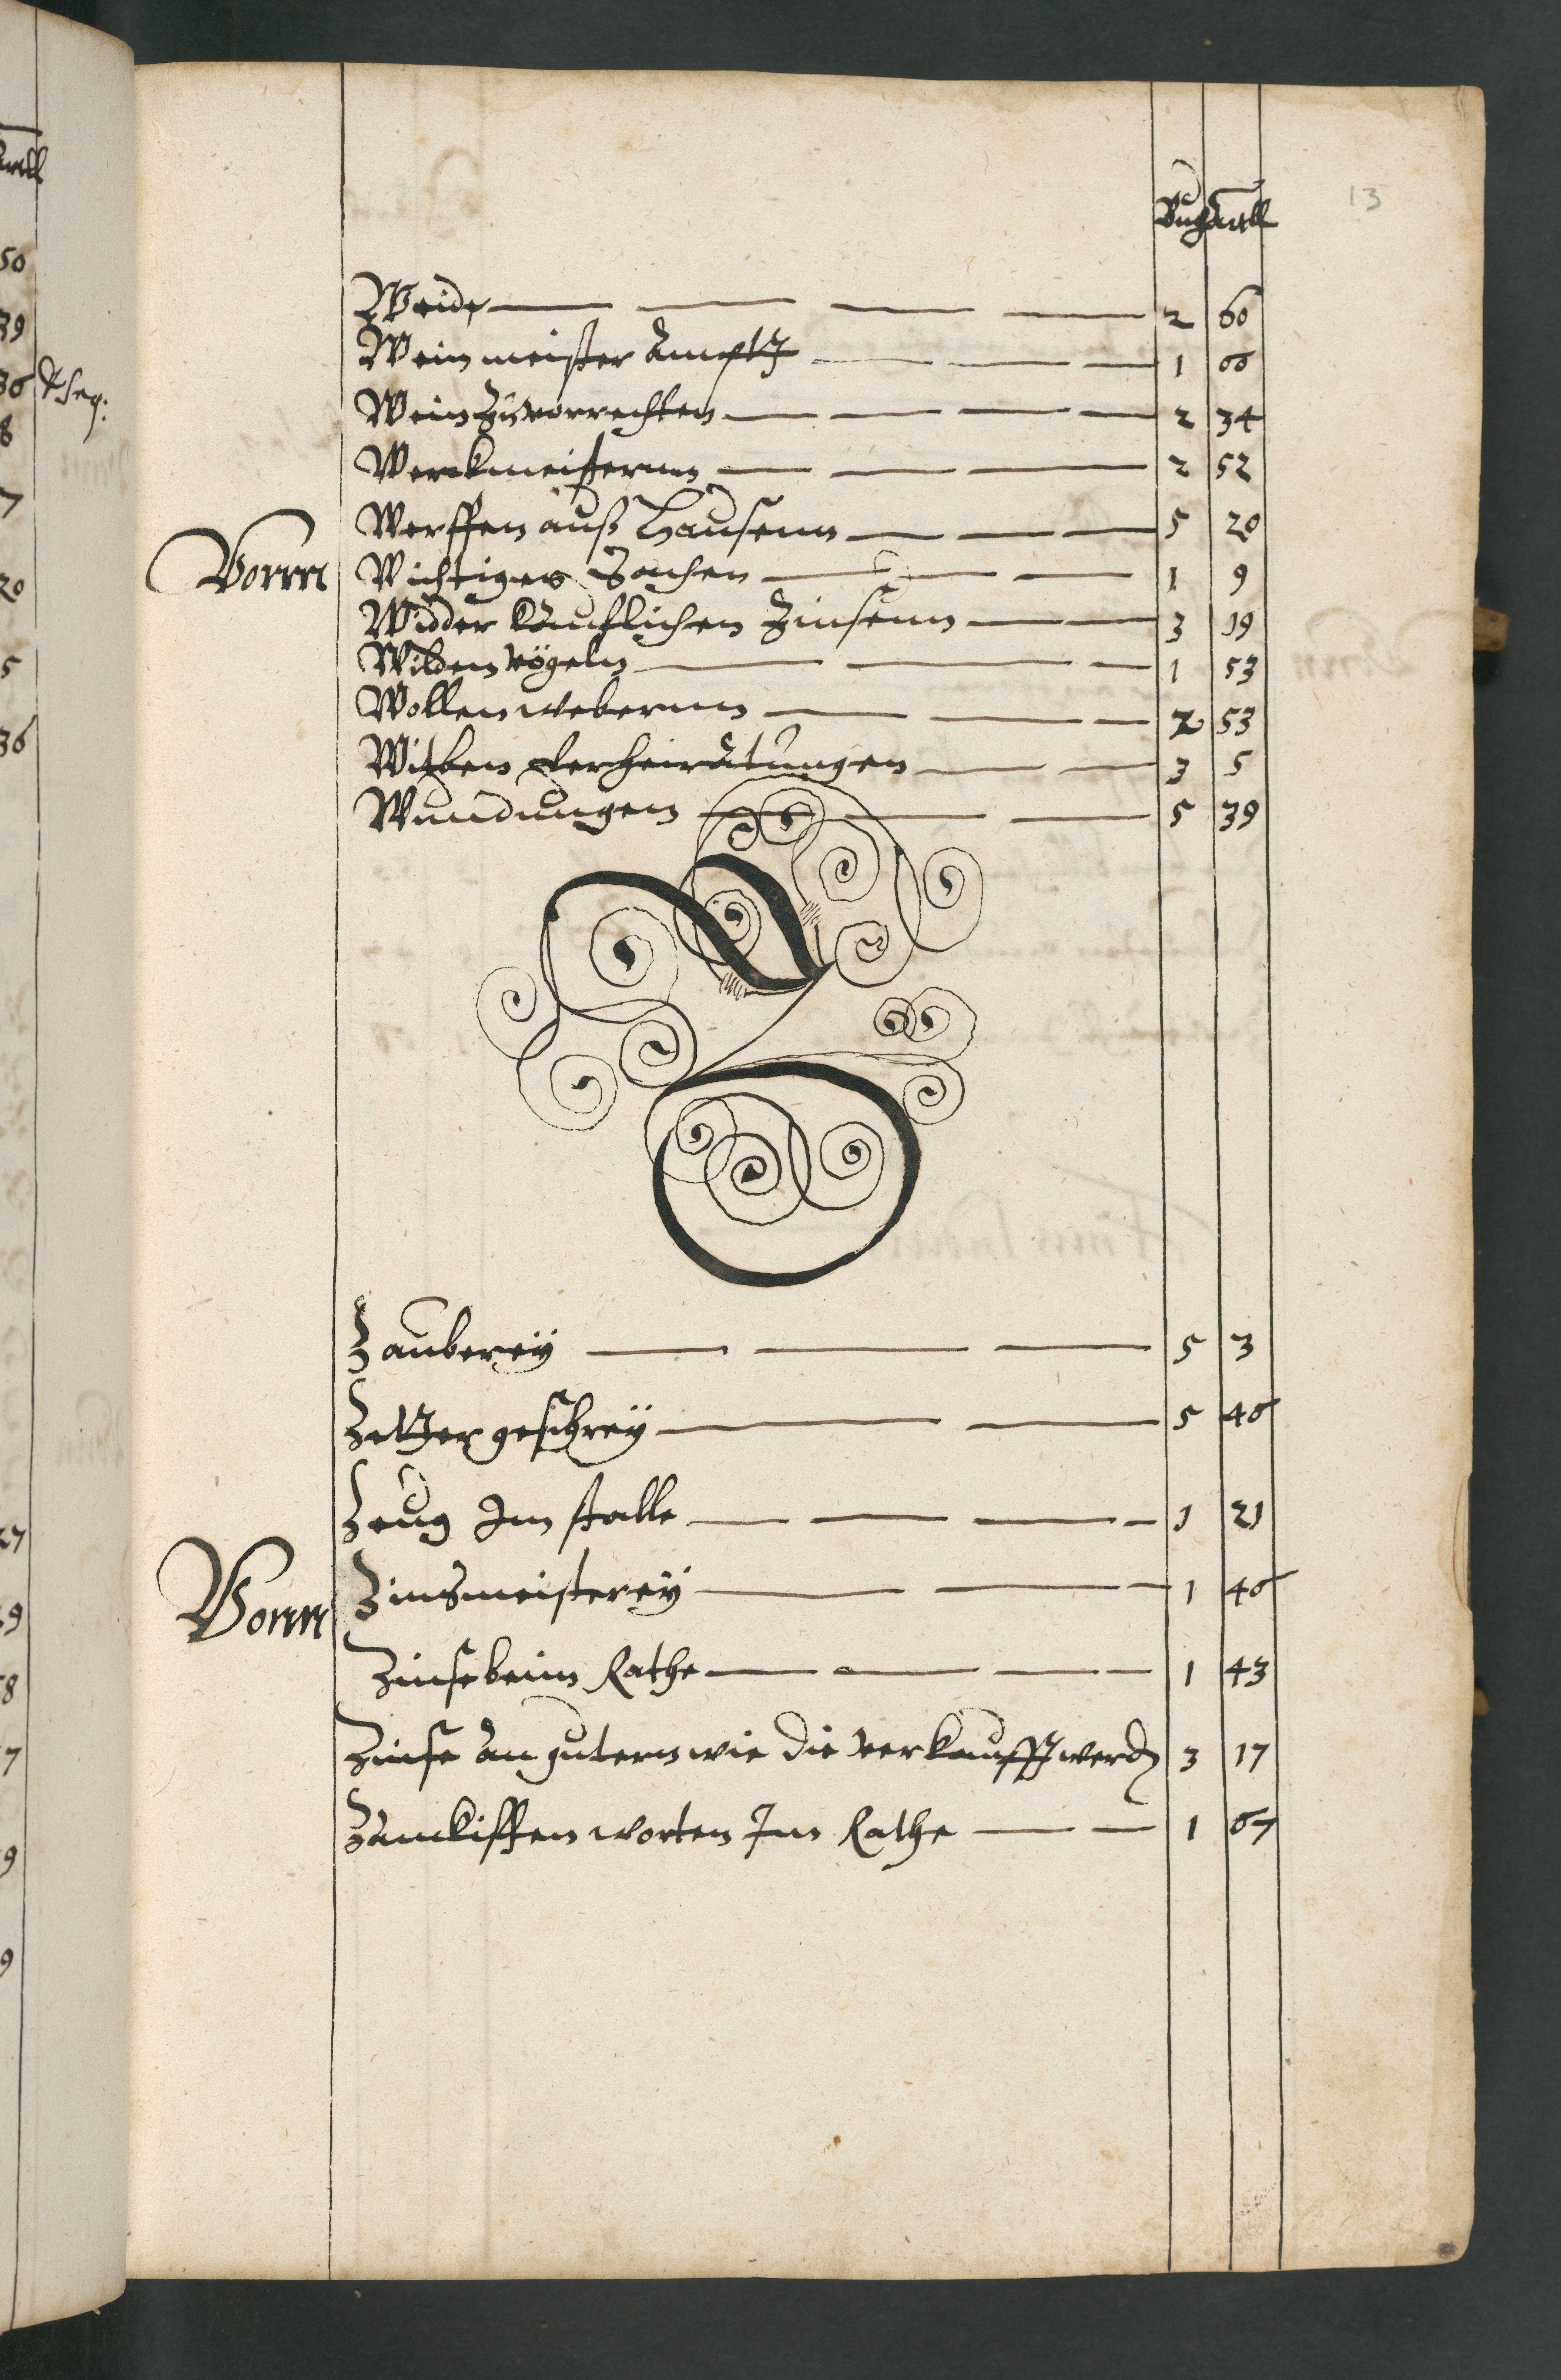 13
Buch Artll
Weide 2 66
Weinmeister Amptt 1 66
Wein zuvorrechten 2 34
Werckmeisternn 2 52
Werffen auß Hausenn 5 20
Vonn Wichtigen Sachen 1 9
Widder Kauflichen Zinsenn 3 19
Wilden vögeln 1 53
Wollenwebernn 2 53
Witben verheiratungen 3 5
Wundungen 5 39
Z
Zauberey 5 3
Zettergeschrey 5 46
Zeug Im stalle 1 21
Vonn Zinsmeisterey 1 46
Zinse beim Rathe 1 43
Zinse an gutern wie die verkaufft werdn 3 17
Zanckissen worten Im Rathe 1 67